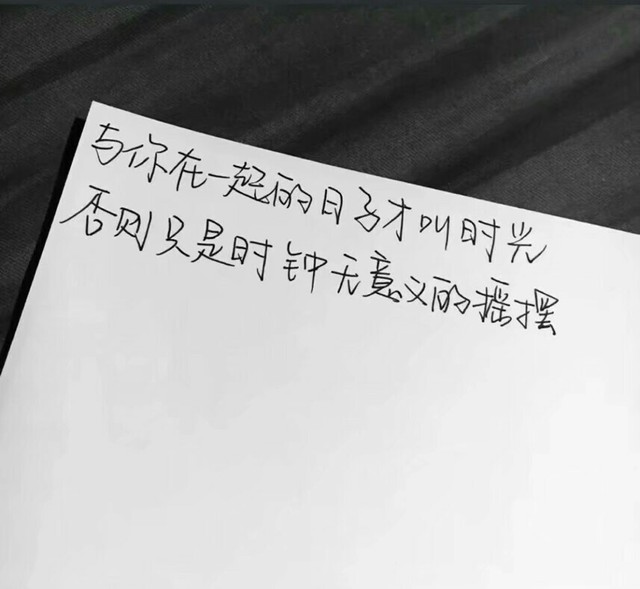 与你在一起的日子才叫时光
否则只是时钟无意义的摇摆